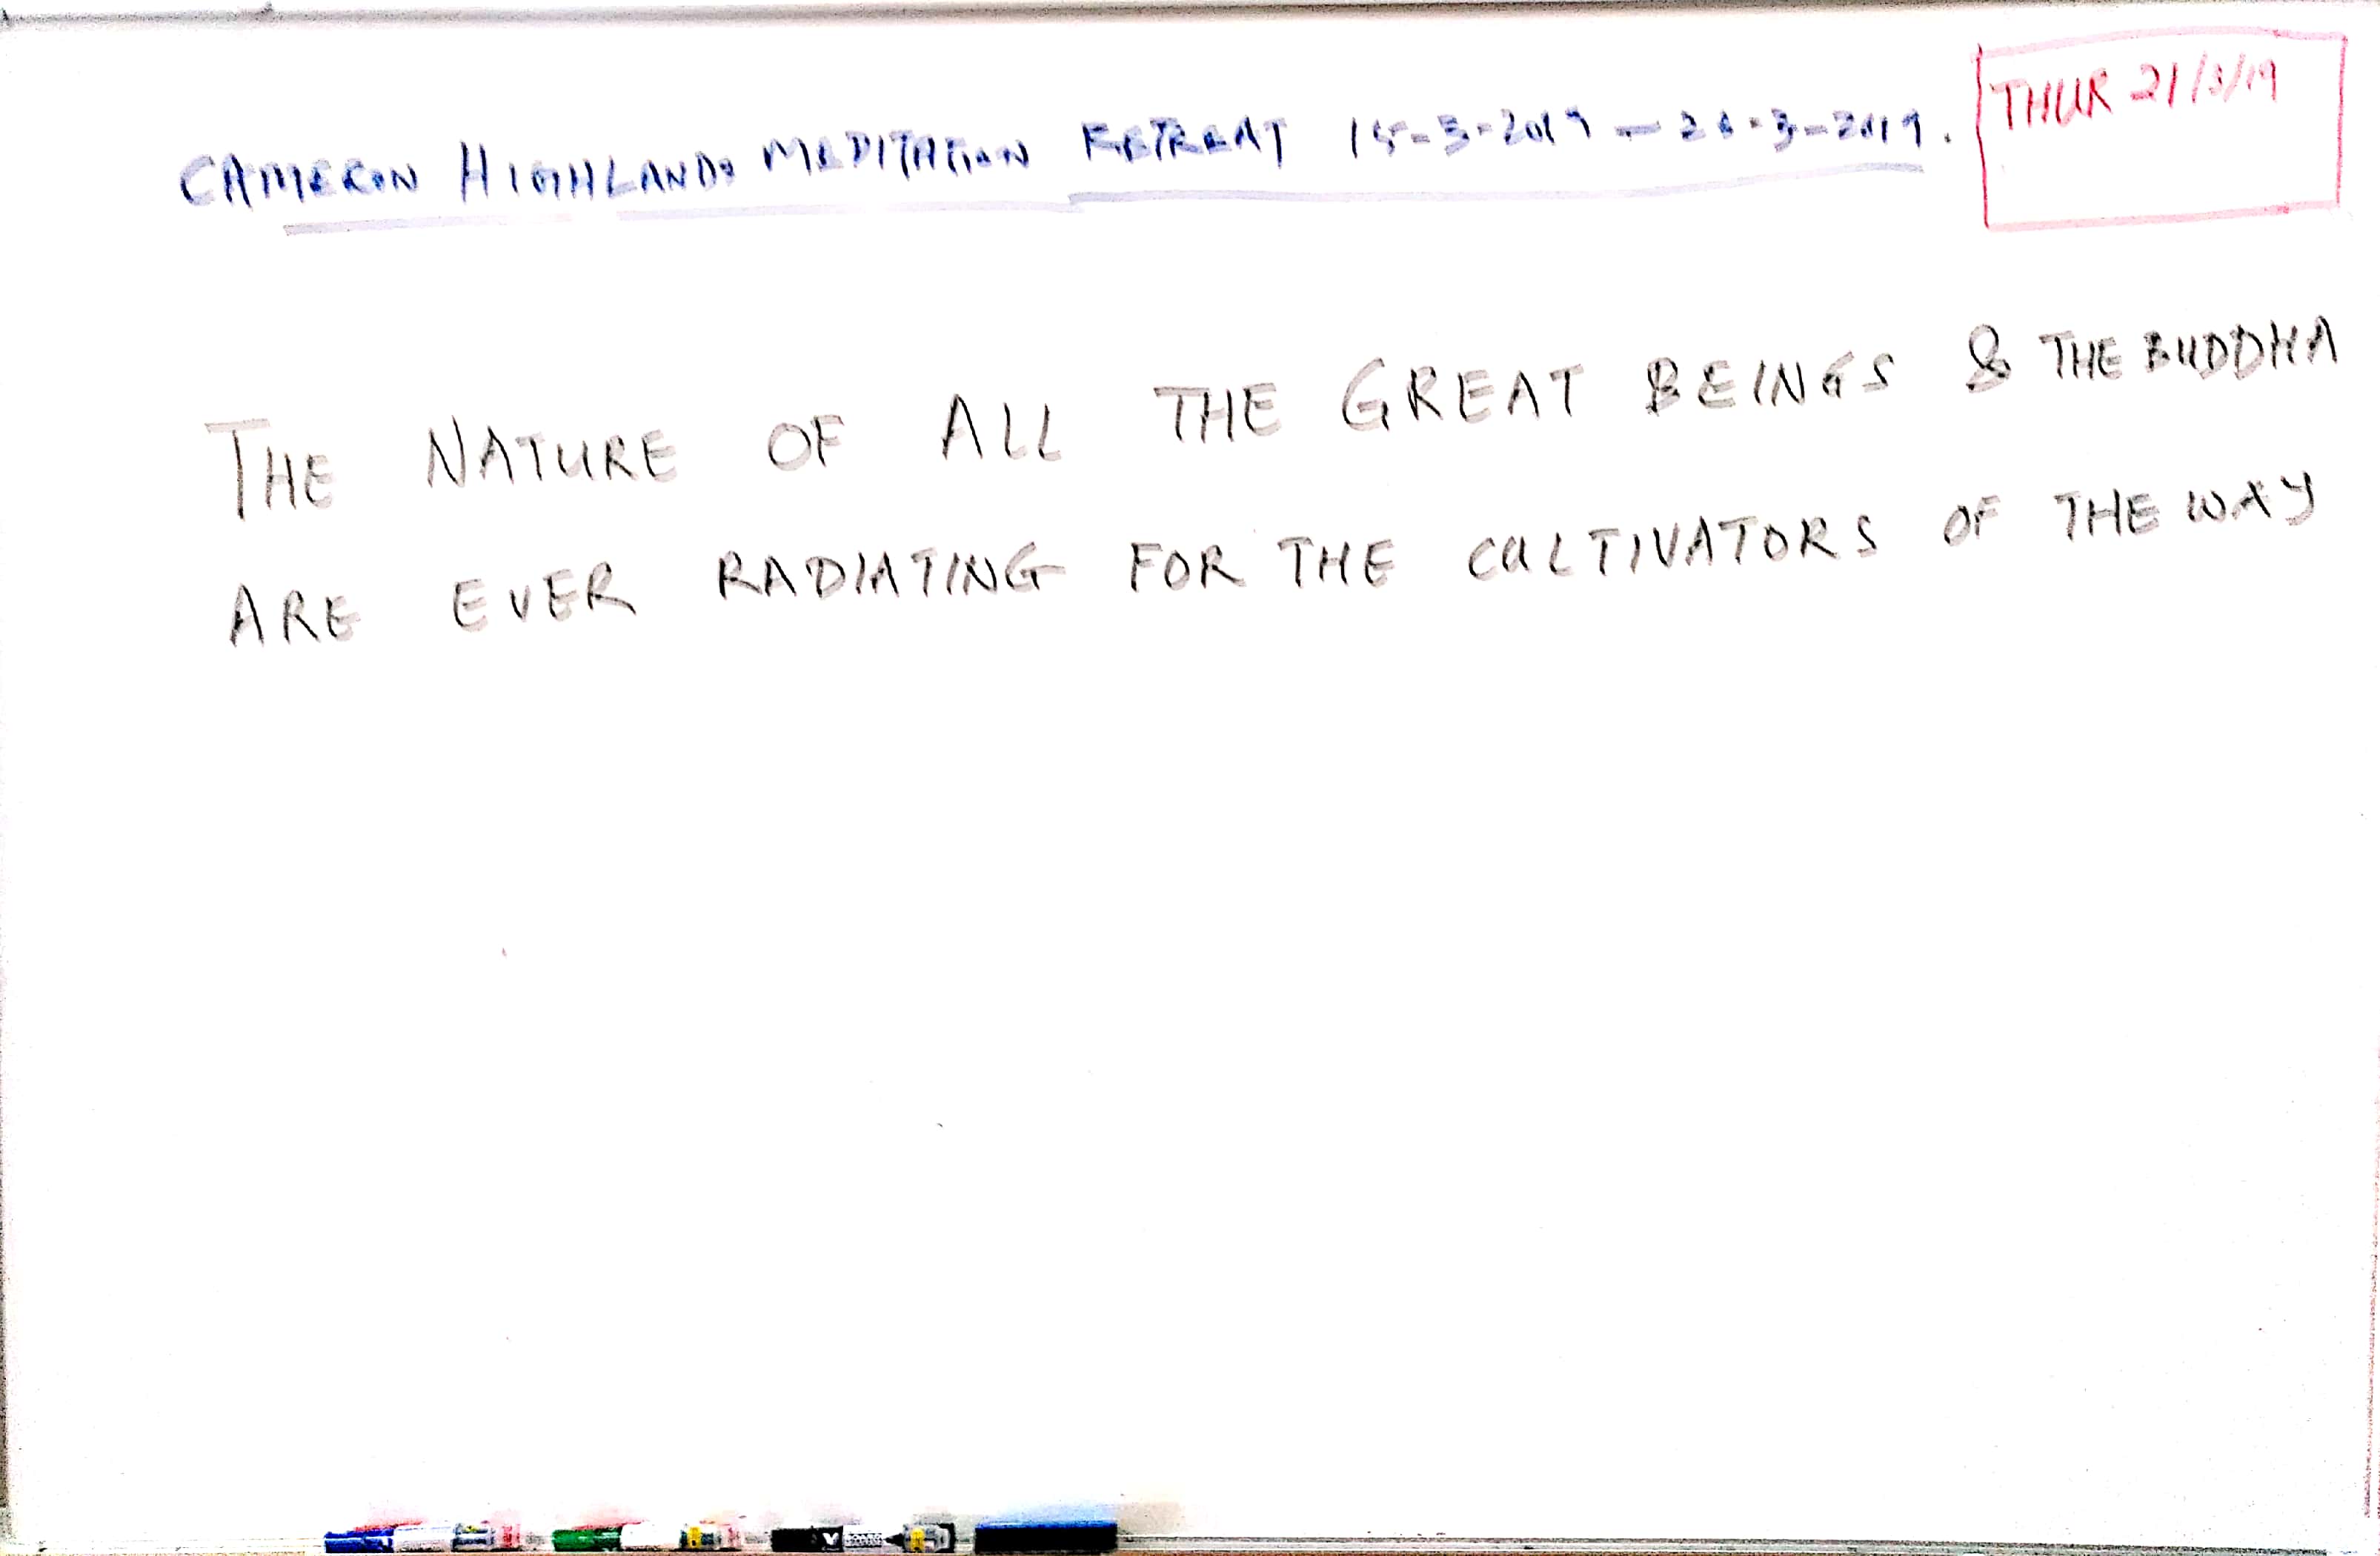 CAMERON HIGHLANDS MEDITATION RETREAT 15-3-2019 — -3-2019.
THUR 21/3/19
THE NATURE OF ALL THE GREAT BEINGS & THE BUDDHA
ARE EVER RADIATING FOR THE CULTIVATORS OF THE WAY